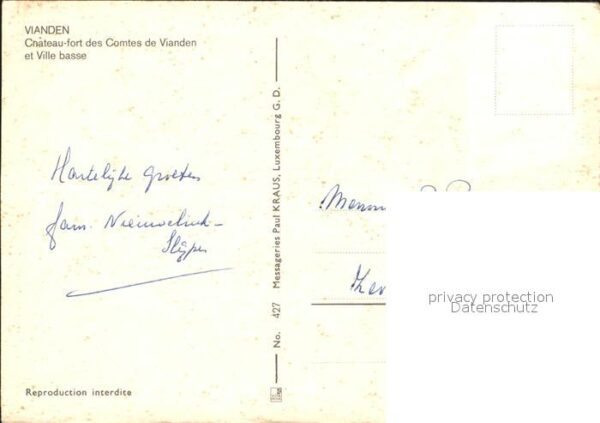 VIANDEN
Château-fort des Comtes de Vianden
et Ville basse
Hartelijke groeten
fam.
No. 427 Messageries Paul KRAUS, Luxembourg G. D.
privacy protection
Datenschutz
Reproduction interdite